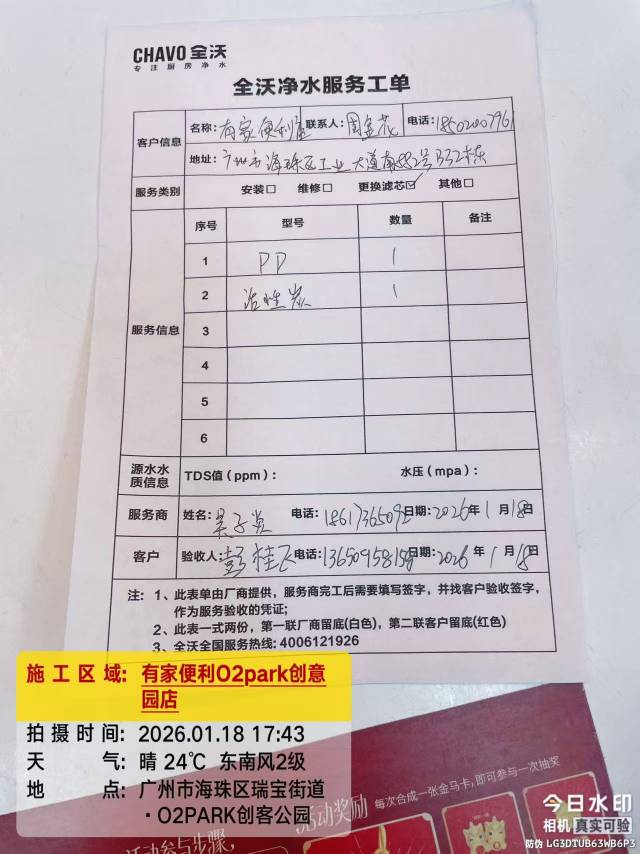 CHAVO 全沃
专注厨房净水
全沃净水服务工单
客户信息 名称：有家便利店 联系人：周金花 电话：18502007961
地址：广州市海珠区工业大道南882号B32栋
服务类别 安装□ 维修□ 更换滤芯☑ 其他□
服务信息 序号 型号 数量 备注
1 PP 1
2 活性炭 1
3
4
5
6
源水水质信息 TDS值（ppm）： 水压（mpa）：
服务商 姓名： 电话：18617365092 日期：2026年1月18日
客户 验收人：彭桂飞 电话：13650958158 日期：2026年1月18日
注：1、此表单由厂商提供，服务商完工后需要填写签字，并找客户验收签字，
作为服务验收的凭证；
2、此表一式两份，第一联厂商留底(白色)，第二联客户留底(红色)
3、全沃全国服务热线：4006121926
施工区域：有家便利O2park创意
园店
拍摄时间：2026.01.18 17:43
天气：晴 24℃ 东南风2级
地点：广州市海珠区瑞宝街道
·O2PARK创客公园
活动奖励 每次合成一张金马卡，即可参与一次抽奖
活动参与步骤
今日水印
相机 真实可验
防伪 LG3DTUB63WB6P3